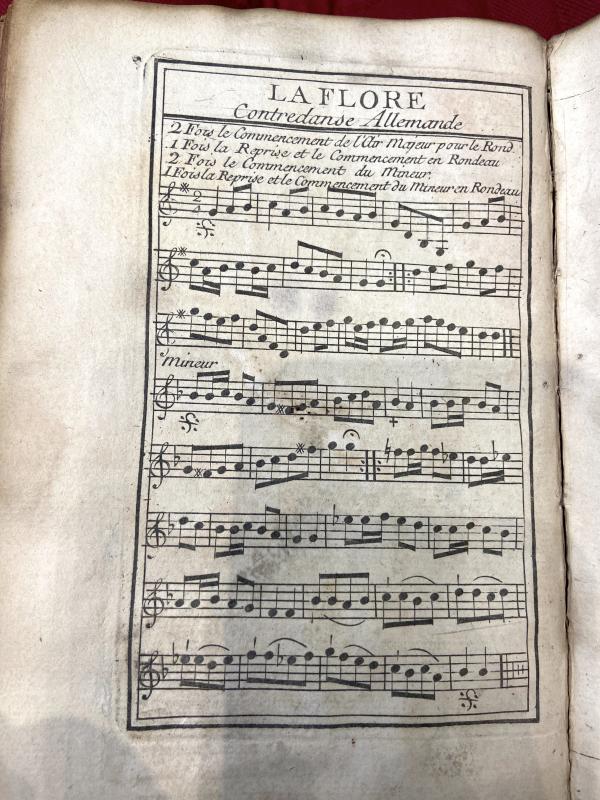 LA FLORE
Contredanse Allemande
2 Fois le Commencement de l'Air Majeur pour le Rond.
1 Fois la Reprise et le Commencement en Rondeau
2 Fois le Commencement du Mineur.
1 Fois la Reprise et le Commencement du Mineur en Rondeau
2
4
Mineur